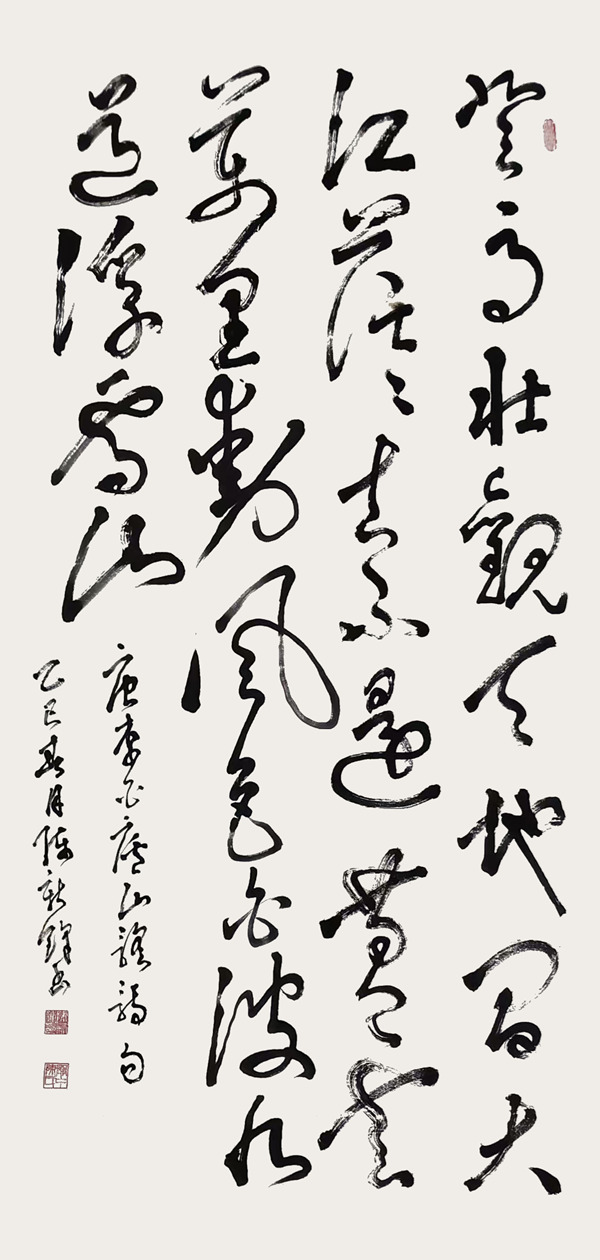 登高壮觀天地間大
江茫々去不還黃雲
萬里動風色白波九
道浮雪山
唐李白廬山謠詩句
乙巳春月陳新書